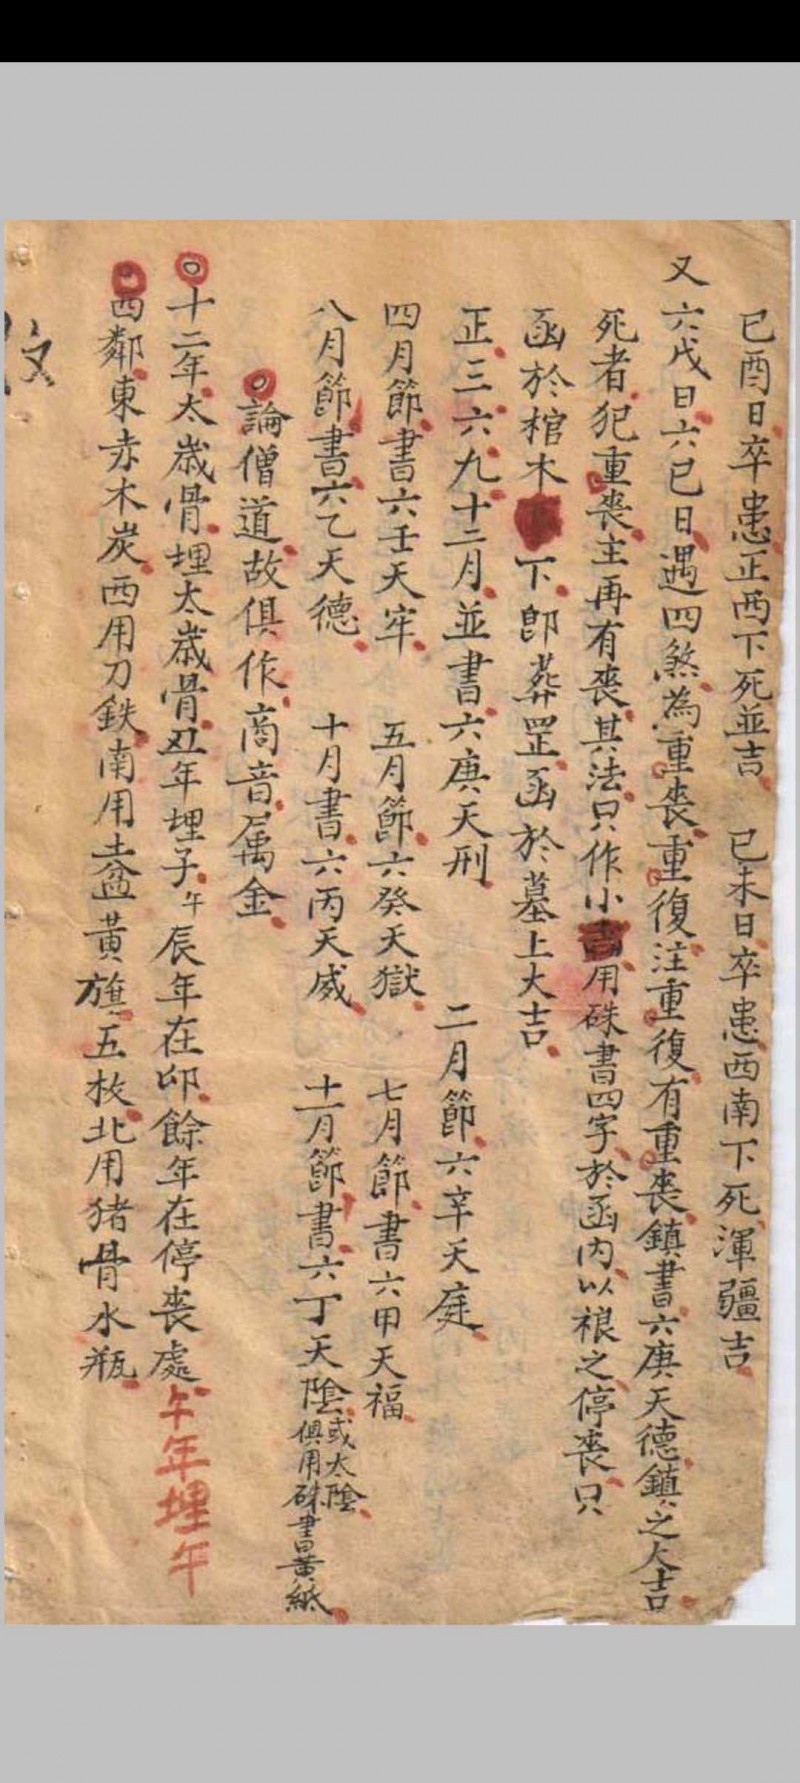 己酉日卒患正西下死並吉　己未日卒患西南下死渾疆吉
又六戊日六己日遇四煞為重喪重復注重復有重喪鎮書六庚天德鎮之大吉
死者犯重喪主再有喪其法只作小用硃書四字於函內以裉之停喪只
函於棺木下即葬罡函於墓上大吉
正三六九十二月並書六庚天刑　二月節六辛天庭
四月節書六壬天牢　五月節六癸天獄　七月節書六甲天福
八月節書六乙天德　十月書六丙天威　十一月節書六丁天陰或太陰俱用硃書黃紙
論僧道故俱作商音属金
十二年太歲骨埋太歲骨丑年埋子午辰年在卯餘年在停喪處午年埋午
四鄰東赤木炭西用刀鉄南用土盆黃旗五枚北用猪骨水瓶